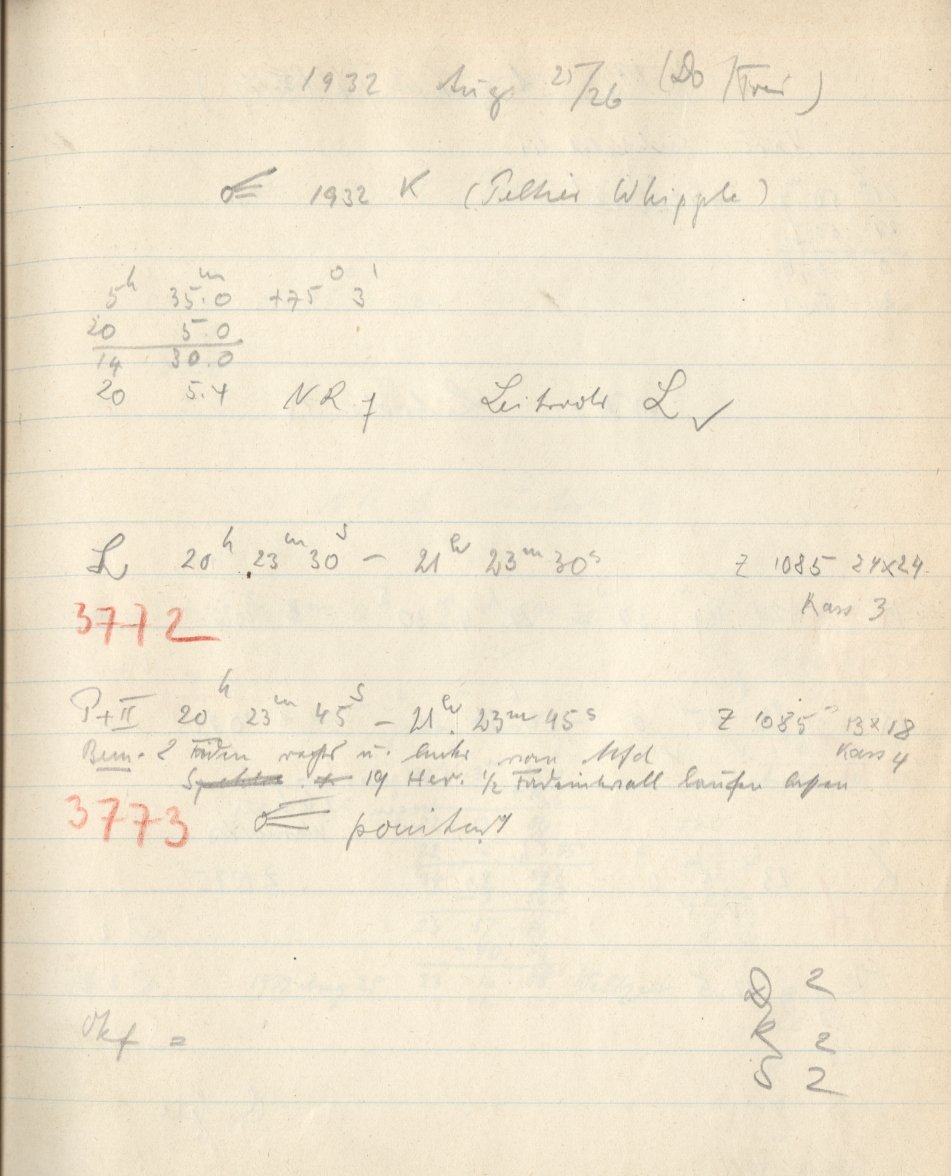 1932 Aug. 25/26 (Do/Frei)
☄ 1932 K (Peltier Whipple)
5h 35m.0 +75° 3'
20 5.0
14 30.0
20 5.4 NR. f Leitrohr L ✓
L 20h 23m 30s – 21h 23m 30s Z 1085 24x24
Kass 3
3772
P+II 20h 23m 45s – 21h 23m 45s Z 1085 13x18
Bem. 2 Fäden rechts u. links von Mfd Kass 4
19 Hev. 1/2 Fadenintervall laufen lassen
3773 ☄ pointiert
D 2
Okf = R 2
S 2